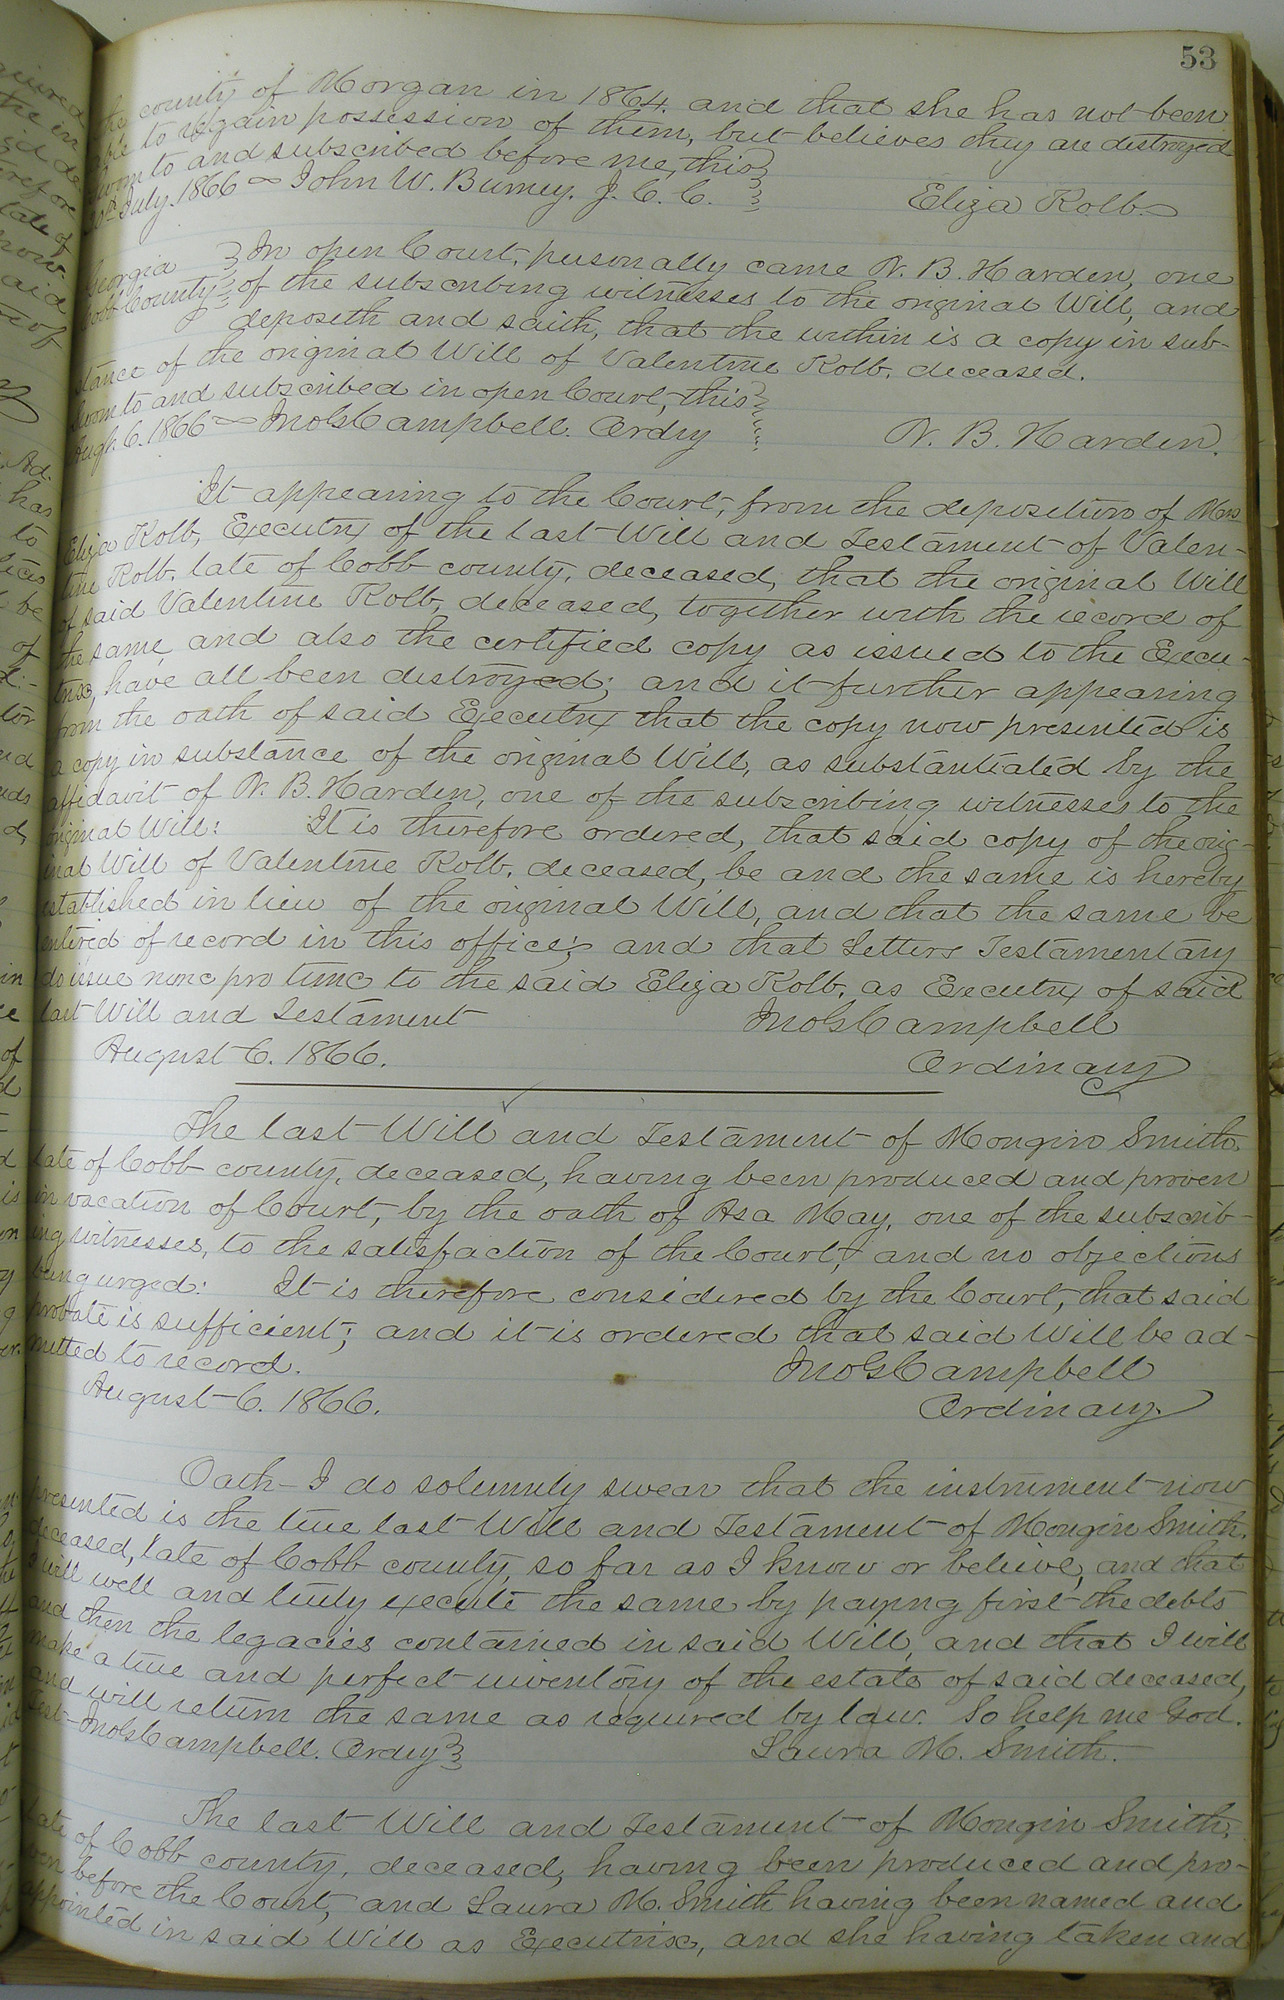 53
the county of Morgan in 1864, and that she has not been
able to regain possession of them, but believes they are destroyed
Sworn to and subscribed before me, this
20th July. 1866 ~ John W. Burney. J. C. C. Eliza Kolb.
Georgia In open Court, personally came N. B. Harden, one
Cobb County of the subscribing witnesses to the original Will, and
deposeth and saith, that the within is a copy in sub-
stance of the original Will of Valentine Kolb. deceased.
Sworn to and subscribed in open Court, this
Augt. 6. 1866 ~ JnoG Campbell. Ordry N. B. Harden.
It appearing to the Court, from the deposition of Mrs
Eliza Kolb, Executrx of the last Will and Testament of Valen-
tine Kolb. late of Cobb county, deceased, that the original Will
of said Valentine Kolb, deceased, together with the record of
the same, and also the certified copy as issued to the Execu-
trix, have all been destroyed; and it further appearing
from the oath of said Executrx that the copy now presented is
a copy in substance of the original Will, as substantiated by the
affidavit of N. B. Harden, one of the subscribing witnesses to the
original Will: It is therefore ordered, that said copy of the orig-
inal Will of Valentine Kolb. deceased, be and the same is hereby
established in lieu of the original Will, and that the same be
entered of record in this office; and that Letters Testamentary
do issue nunc pro tunc to the said Eliza Kolb. as Executrx of said
last Will and Testament JnoG Campbell
August 6. 1866. Ordinary
The last Will and Testament of Mongin Smith.
late of Cobb county, deceased, having been produced and proven
in vacation of Court, by the oath of Asa May, one of the subscrib-
ing witnesses, to the satisfaction of the Court, and no objections
being urged: It is therefore considered by the Court, that said
probate is sufficient; and it is ordered that said Will be ad-
mitted to record. JnoG Campbell
August 6. 1866. Ordinary.
Oath - I do solemnly swear that the instrument now
presented is the true last Will and Testament of Mongin Smith.
deceased, late of Cobb county, so far as I know or believe, and that
I will well and truly execute the same by paying first the debts
and then the legacies contained in said Will, and that I will
make a true and perfect inventory of the estate of said deceased,
and will return the same as required by law. So help me God.
Test - JnoG Campbell. Ordry Laura M. Smith.
The last Will and Testament of Mongin Smith.
late of Cobb county, deceased, having been produced and pro-
ven before the Court, and Laura M. Smith having been named and
appointed in said Will as Executrix, and she having taken and